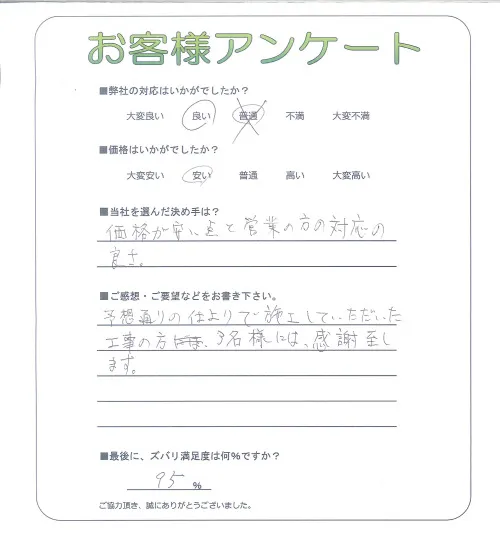 お客様アンケート
■弊社の対応はいかがでしたか？
大変良い 良い 普通 不満 大変不満
■価格はいかがでしたか？
大変安い 安い 普通 高い 大変高い
■当社を選んだ決め手は？
価格が安い点と営業の方の対応の
良さ。
■ご感想・ご要望などをお書き下さい。
予想通りの仕上りで施工していただいた
工事の方 3名様には、感謝致し
ます。
■最後に、ズバリ満足度は何%ですか？
95 %
ご協力頂き、誠にありがとうございました。